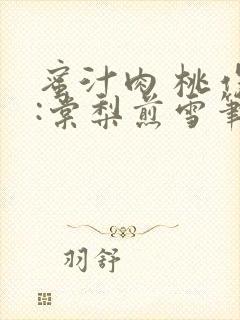 蜜汁肉桃
:棠梨煎雪
羽舒